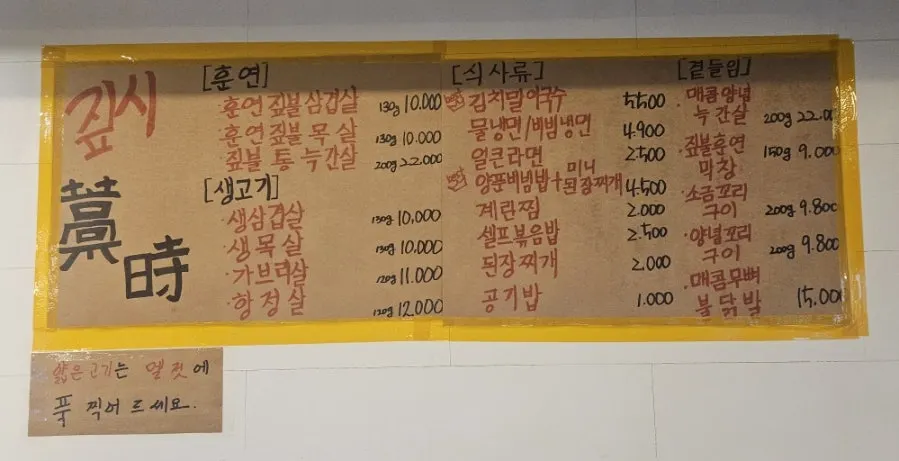 짚시
藁時
[훈연]
·훈연 짚불 삼겹살 130g 10.000
·훈연 짚불 목살 130g 10.000
짚불 통 녹간살 200g 22.000
[생고기]
·생삼겹살 130g 10,000
·생목살 130g 10.000
·가브리살 120g 11.000
·항정살 120g 12.000
[식사류]
김치말이국수 5,500
물냉면/비빔냉면 4.900
얼큰라면 2,500
양푼비빔밥+미니 된장찌개 4.500
계란찜 2.000
셀프볶음밥 2.500
된장찌개 2.000
공기밥 1.000
[곁들임]
·매콤양념
녹간살 200g 22.000
·짚불훈연
막창 150g 9.000
·소금꼬리
구이 200g 9.800
·양념꼬리
구이 200g 9.800
·매콤무뼈
불닭발 15,000
얇은고기는 멜젓에
푹 찍어 드세요.